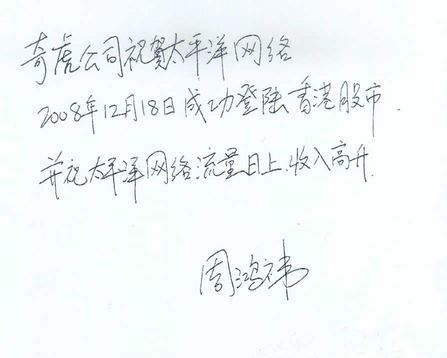 奇虎公司祝贺太平洋网络
2008年12月18日成功登陆香港股市.
并祝太平洋网络流量日上,收入高升.
周鸿祎